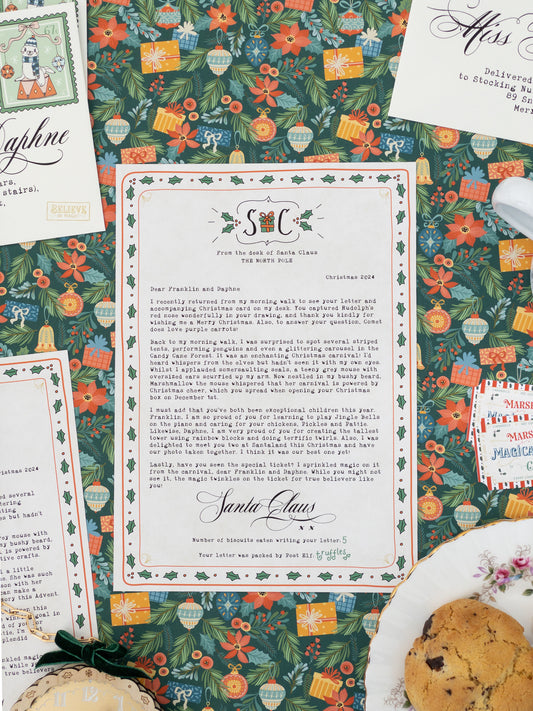 67
Miss
Delivered
to Stocking Nu
89 Sn
Merr
Daphne
ars,
stairs),
t.
BELIEVE
S C
From the desk of Santa Claus
THE NORTH POLE
Christmas 2024
Dear Franklin and Daphne
I recently returned from my morning walk to see your letter and
accompanying Christmas card on my desk. You captured Rudolph's
red nose wonderfully in your drawing, and thank you kindly for
wishing me a Merry Christmas. Also, to answer your question, Comet
does love purple carrots!
Back to my morning walk, I was surprised to spot several striped
tents, performing penguins and even a glittering carousel in the
Candy Cane Forest. It was an enchanting Christmas carnival! I'd
heard whispers from the elves but hadn't seen it with my own eyes.
Whilst I applauded somersaulting seals, a teeny grey mouse with
oversized ears scurried up my arm. Now nestled in my bushy beard,
Marshmallow the mouse whispered that her carnival is powered by
Christmas cheer, which you spread when opening your Christmas
box on December 1st.
I must add that you've both been exceptional children this year.
Franklin, I am so proud of you for learning to play Jingle Bells
on the piano and caring for your chickens, Pickles and Pattie.
Likewise, Daphne, I am very proud of you for creating the tallest
tower using rainbow blocks and doing terrific twirls. Also, I was
delighted to meet you two at Santaland this Christmas and have
our photo taken together. I think it was our best one yet!
Lastly, have you seen the special ticket? I sprinkled magic on it
from the carnival, dear Franklin and Daphne. While you might not
see it, the magic twinkles on the ticket for true believers like
you!
Santa Claus
x x
Number of biscuits eaten writing your letter: 5
Your letter was packed by Post Elf: truffles
MARSH
MARSH
MAGICA
C
stmas 2024
ed several
ttering
nting
es but hadn't
rey mouse with
my bushy beard,
l is powered by
tive crafts.
l a little
s. She was such
ason with her
an make a
ory this Advent.
on this
e winning goal in
d of you for
tie, I'm
plendid
ckled magic
e. While you
true believers